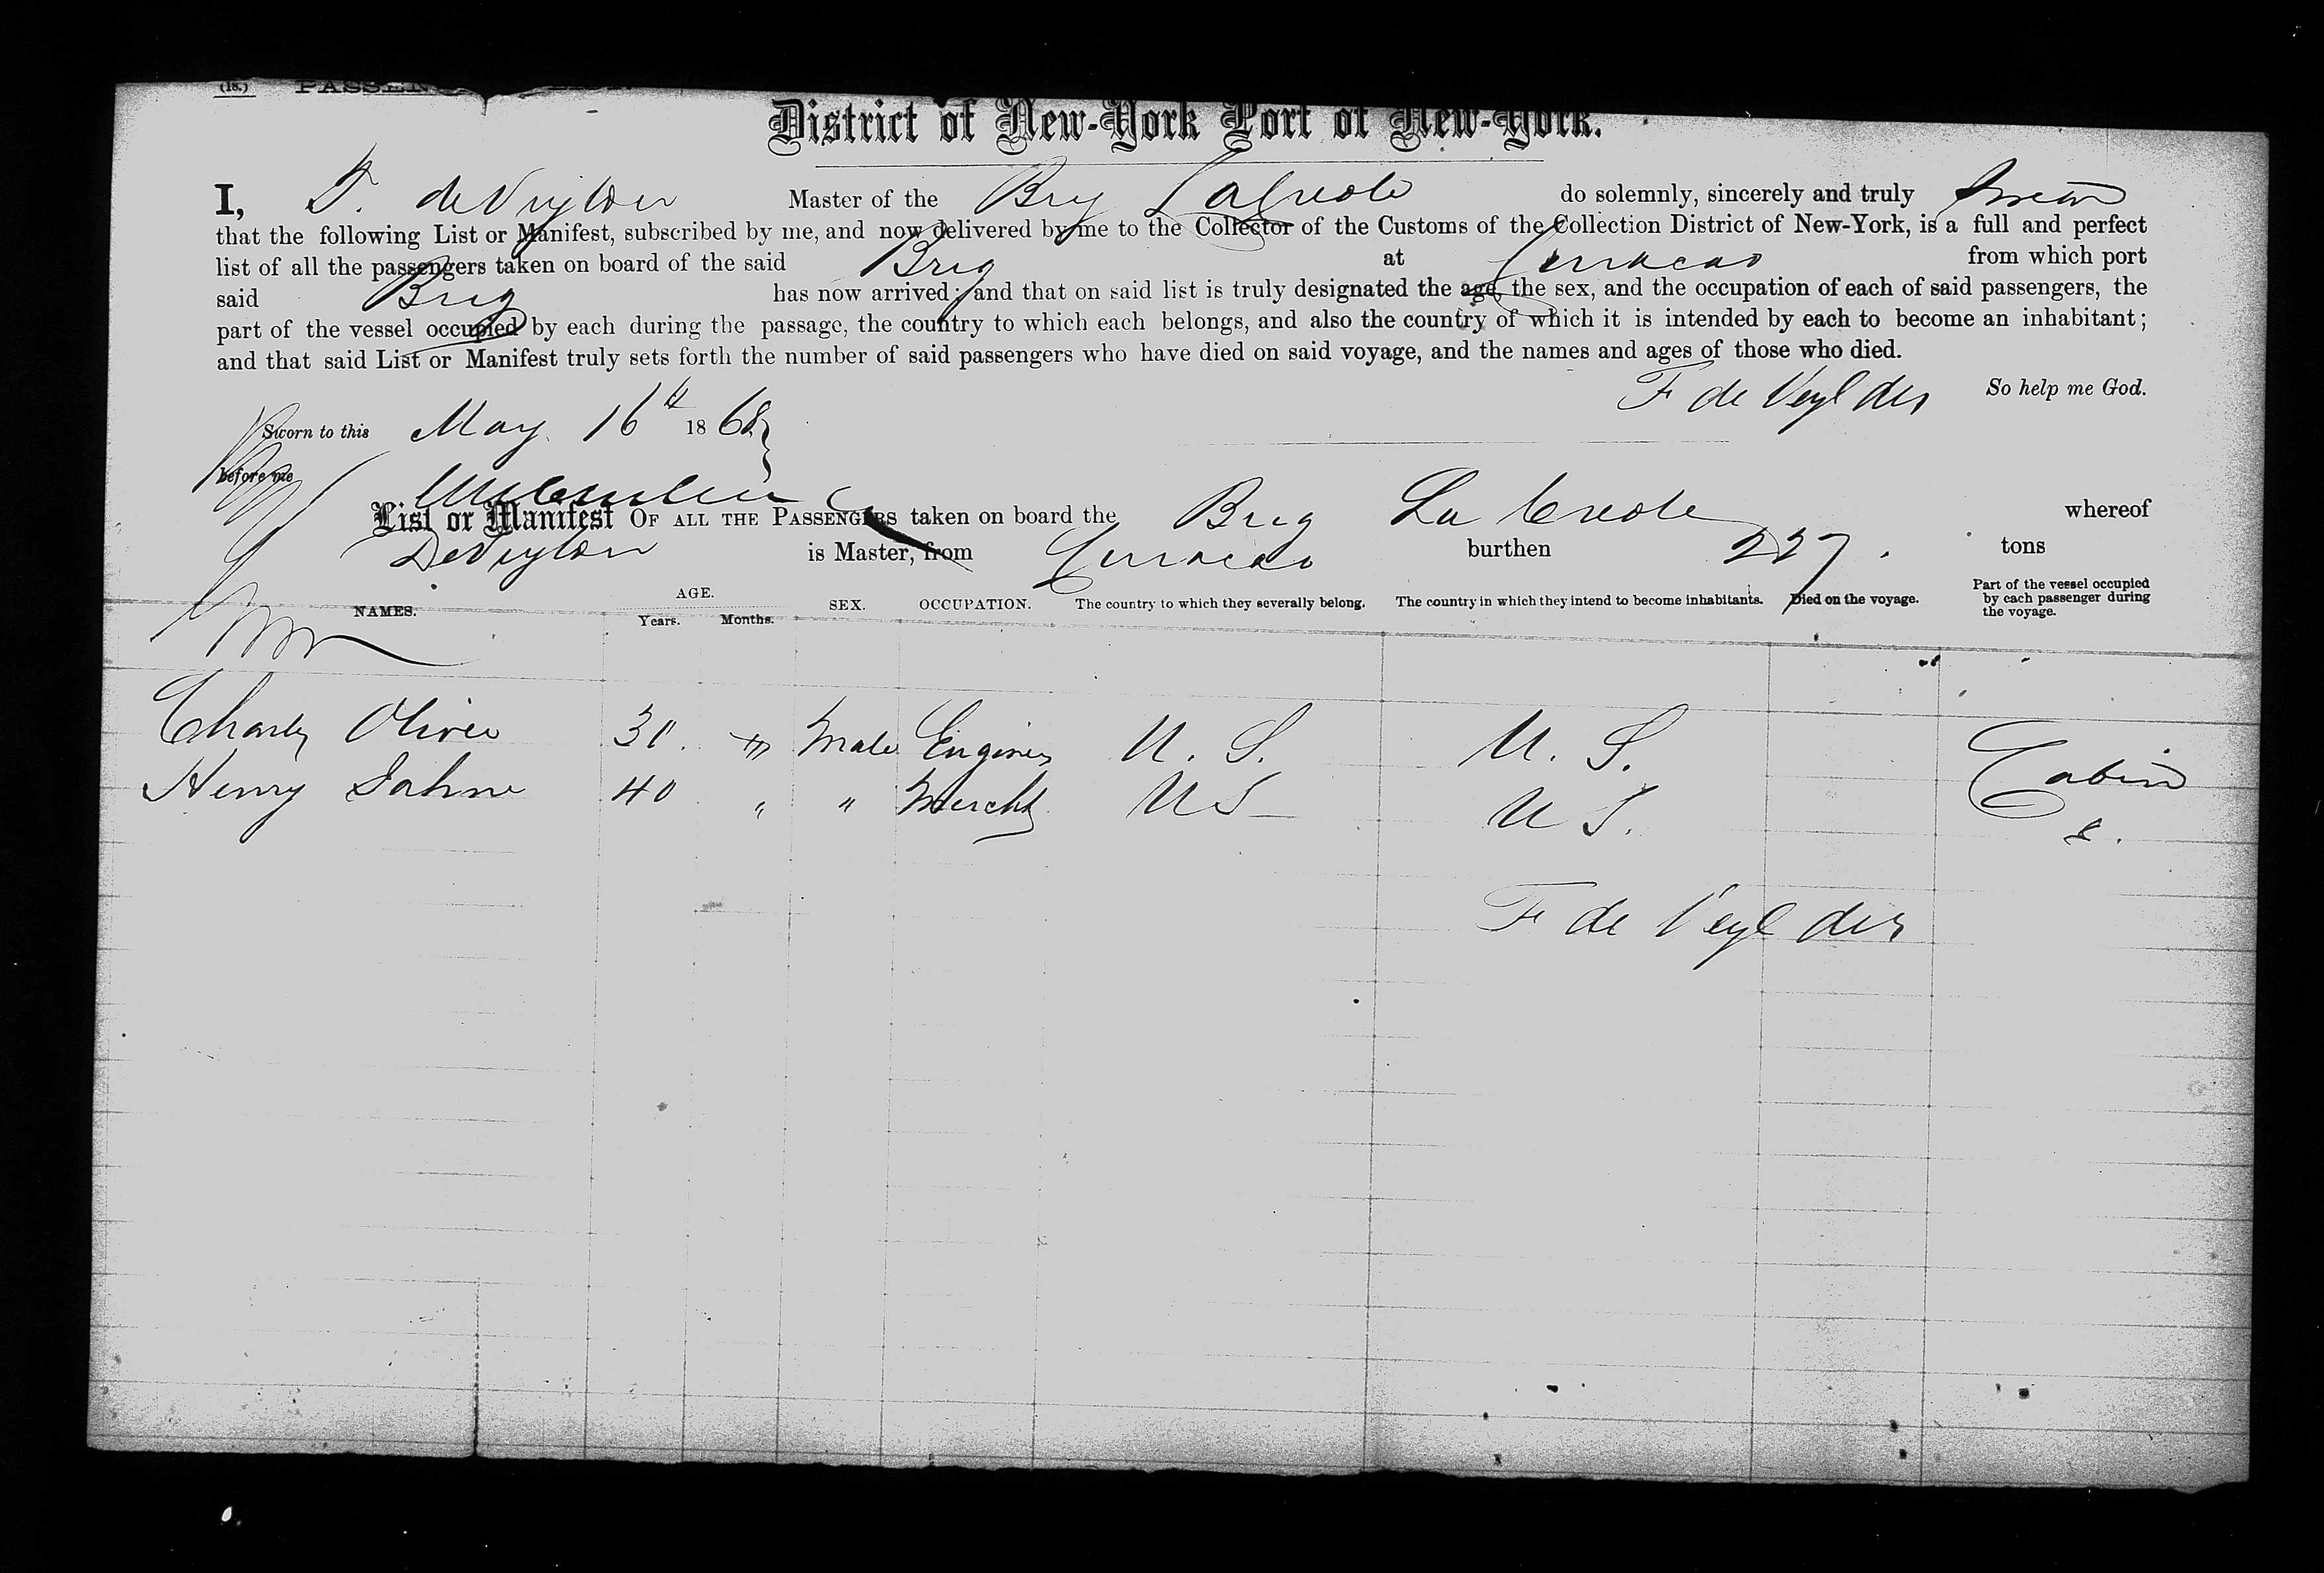 (18.) PASSEN
District of New-York Port of New-York.
I, F. de Vuylder Master of the Brig La Creole do solemnly, sincerely and truly swear
that the following List or Manifest, subscribed by me, and now delivered by me to the Collector of the Customs of the Collection District of New-York, is a full and perfect
list of all the passengers taken on board of the said Brig at Curacao from which port
said Brig has now arrived; and that on said list is truly designated the age, the sex, and the occupation of each of said passengers, the
part of the vessel occupied by each during the passage, the country to which each belongs, and also the country of which it is intended by each to become an inhabitant;
and that said List or Manifest truly sets forth the number of said passengers who have died on said voyage, and the names and ages of those who died.
F de Veylder So help me God.
Sworn to this May 16th 1868
before me
List or Manifest OF ALL THE PASSENGERS taken on board the Brig La Creole whereof
DeVuylder is Master, from Curacao burthen 227. tons
NAMES. AGE. Years. Months. SEX. OCCUPATION. The country to which they severally belong. The country in which they intend to become inhabitants. Died on the voyage. Part of the vessel occupied by each passenger during the voyage.
Charles Oliver 30. " Male Engineer U. S. U. S. Cabin
Henry Jahne 40 " " Mercht US U S.
F de Veylder